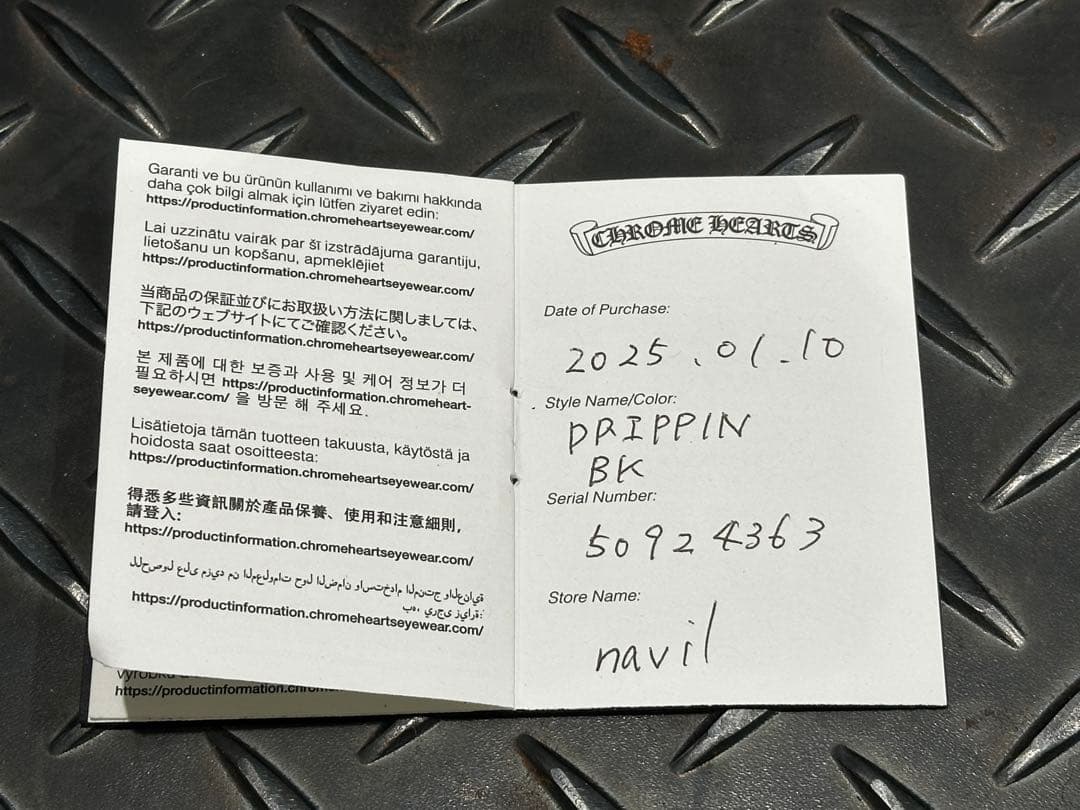 Garanti ve bu ürünün kullanımı ve bakımı hakkında
daha çok bilgi almak için lütfen ziyaret edin:
https://productinformation.chromeheartseyewear.com/
Lai uzzinātu vairāk par šī izstrādājuma garantiju,
lietošanu un kopšanu, apmeklējiet
https://productinformation.chromeheartseyewear.com/
当商品の保証並びにお取扱い方法に関しましては、
下記のウェブサイトにてご確認ください。
https://productinformation.chromeheartseyewear.com/
본 제품에 대한 보증과 사용 및 케어 정보가 더
필요하시면 https://productinformation.chromeheart-
seyewear.com/ 을 방문 해 주세요.
Lisätietoja tämän tuotteen takuusta, käytöstä ja
hoidosta saat osoitteesta:
https://productinformation.chromeheartseyewear.com/
得悉多些資訊關於產品保養、使用和注意細則,
請登入:
https://productinformation.chromeheartseyewear.com/
للحصول على مزيد من المعلومات حول الضمان واستخدام المنتج والعناية
به، يرجى زيارة:
https://productinformation.chromeheartseyewear.com/
https://productinformation.chro
CHROME HEARTS
Date of Purchase:
2025.01.10
Style Name/Color:
DRIPPIN
BK
Serial Number:
50924363
Store Name:
navil